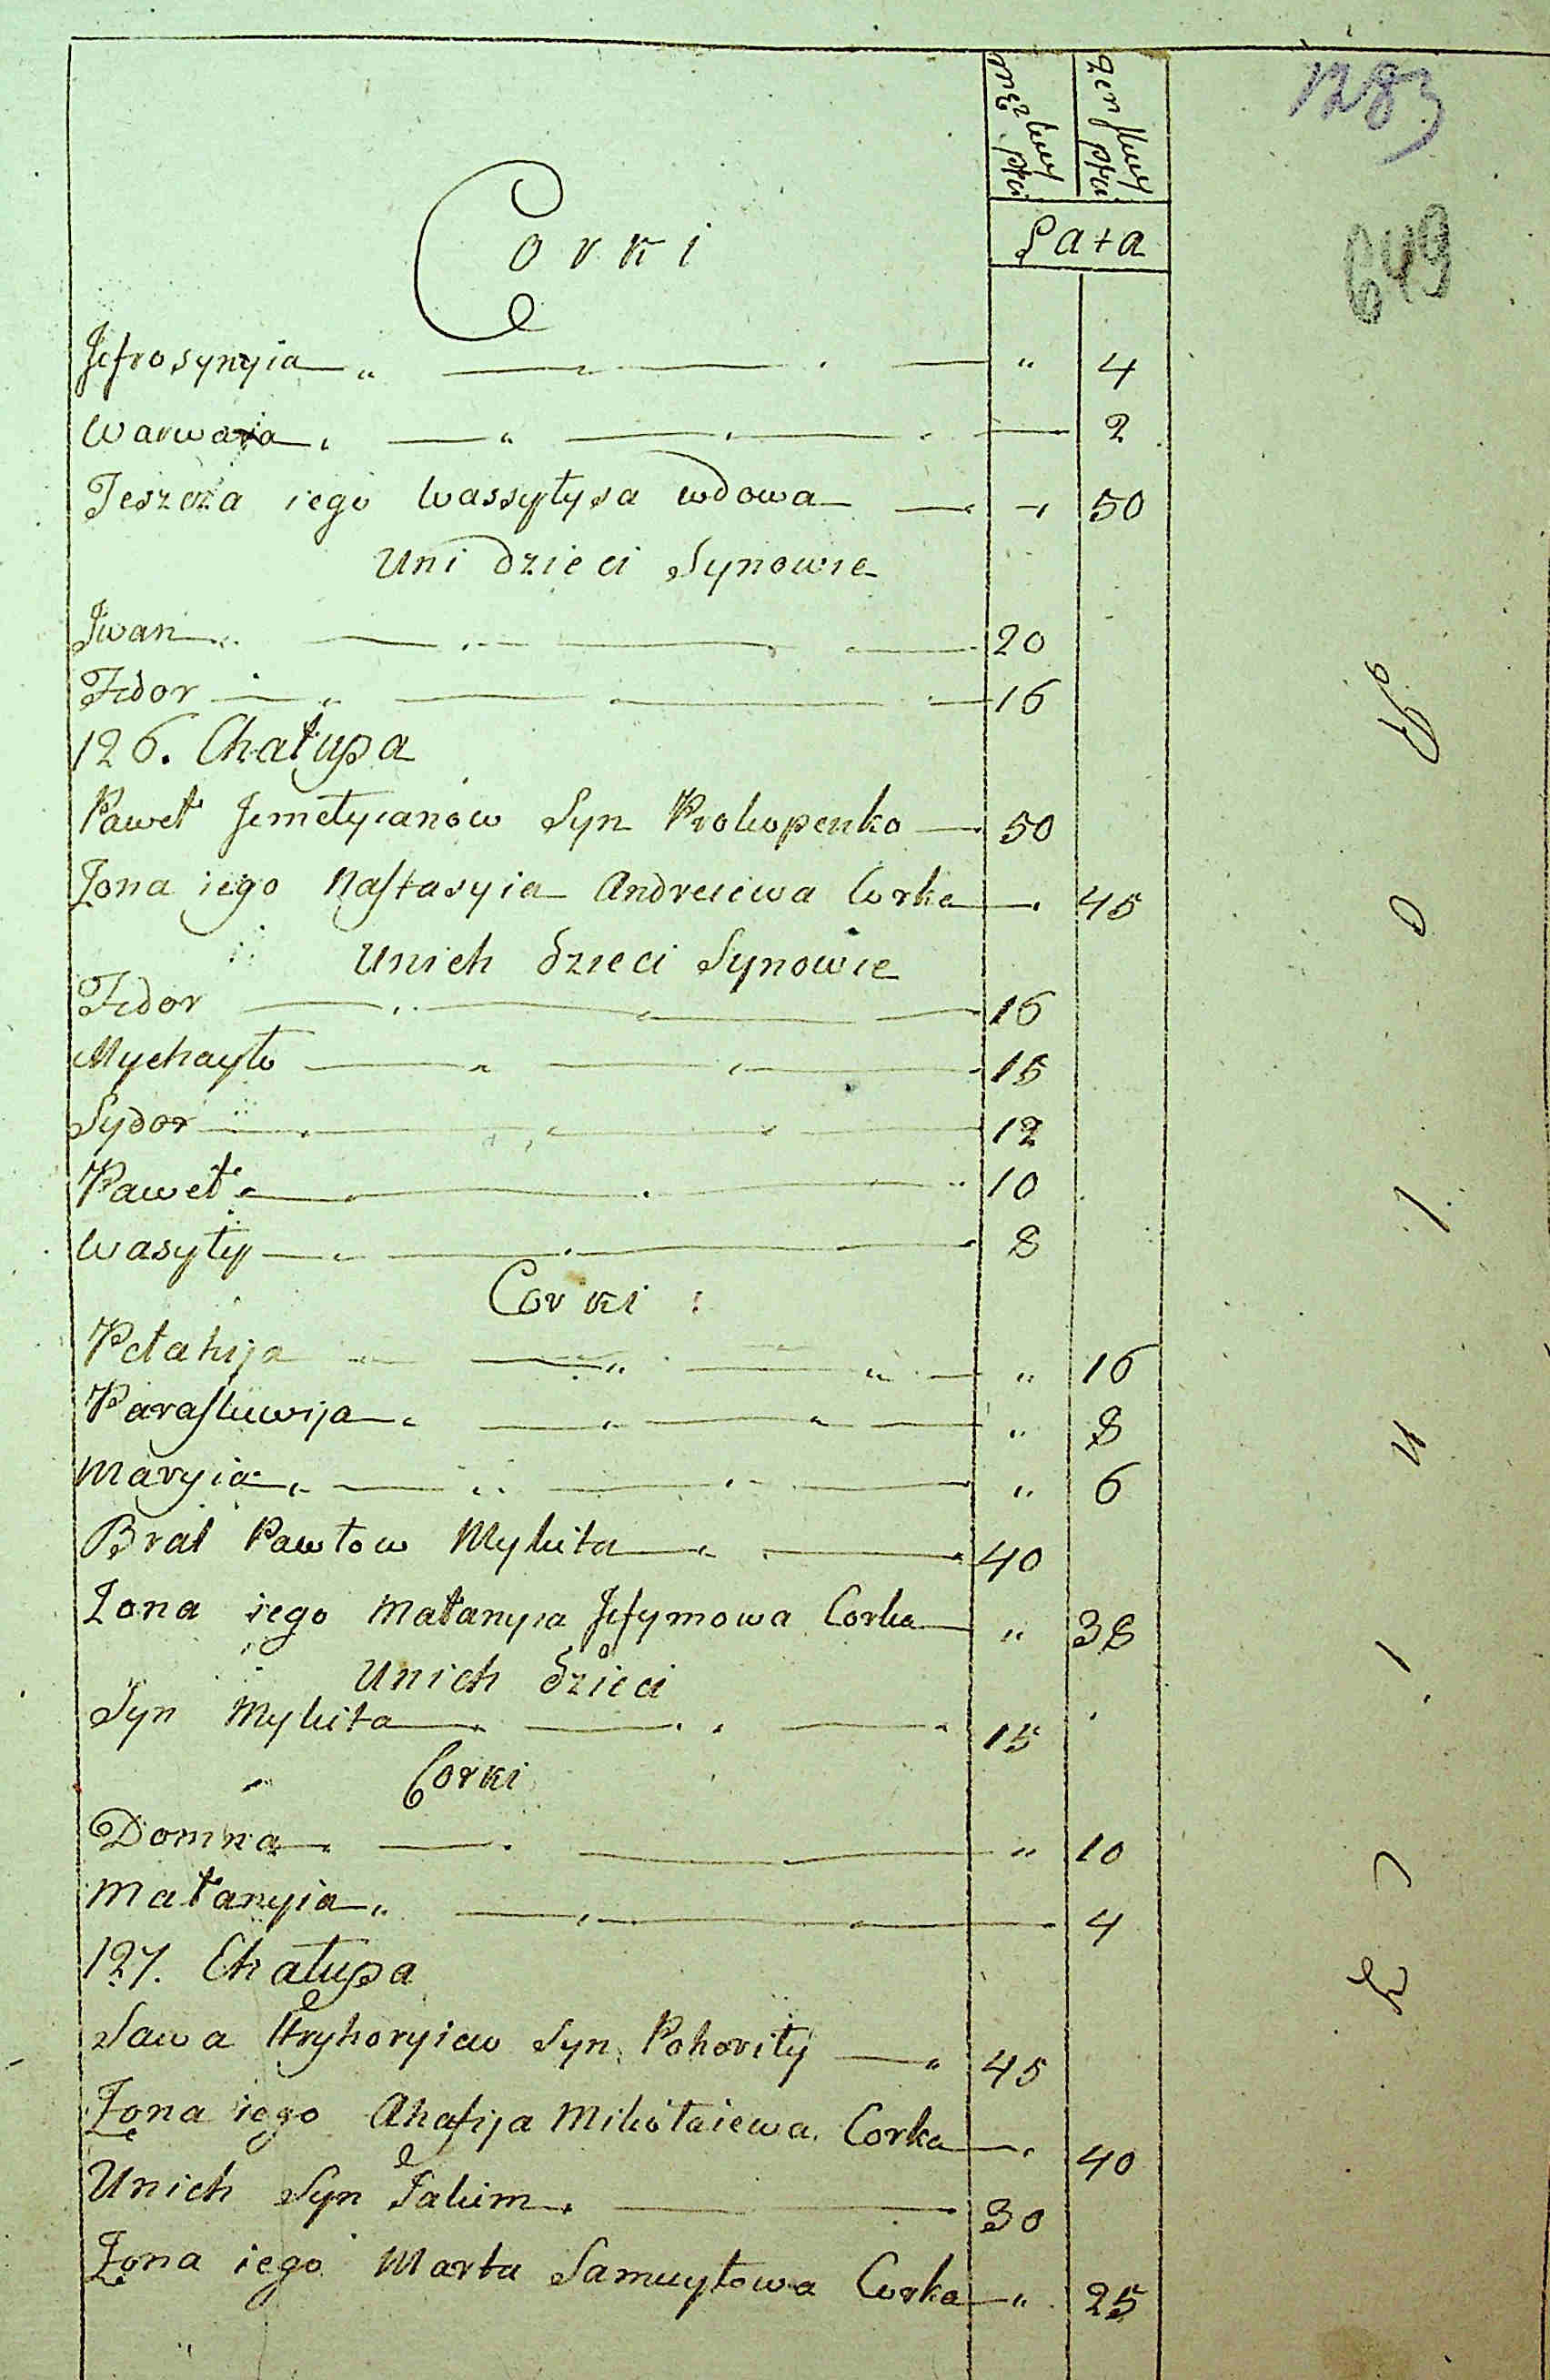 męzkiey płci
żenskiey płci
1283
Lata
649
Corki
Jefrosynyia 4
Warwara 2
Teszcza iego Wassyłysa wdowa 50
Uni dzieci Synowie
Jwan 20
Fedor 16
126. Chałupa
Paweł Jemełyianow Syn Prokopenko 50
Żona iego Nastasyia Andreiewa Corka 45
Unich dzieci Synowie
Fedor 16
Mychayło 15
Sydor 12
Paweł 10
Wasyły 8
Corki
Pełahija 16
Paraskiewija 8
Maryia 6
Brat Pawłow Mykita 40
Żona iego Małanyia Jefymowa Corka 38
Unich dzieci
Syn Mykita 15
Corki
Domna 10
Małanyia 4
127. Chałupa
Sawa Hryhoryiew Syn Pohoriły 45
Żona iego Ahafija Mikołaiewa Corka 40
Unich Syn Jakim 30
Żona iego Marta Samuyłowa Corka 25